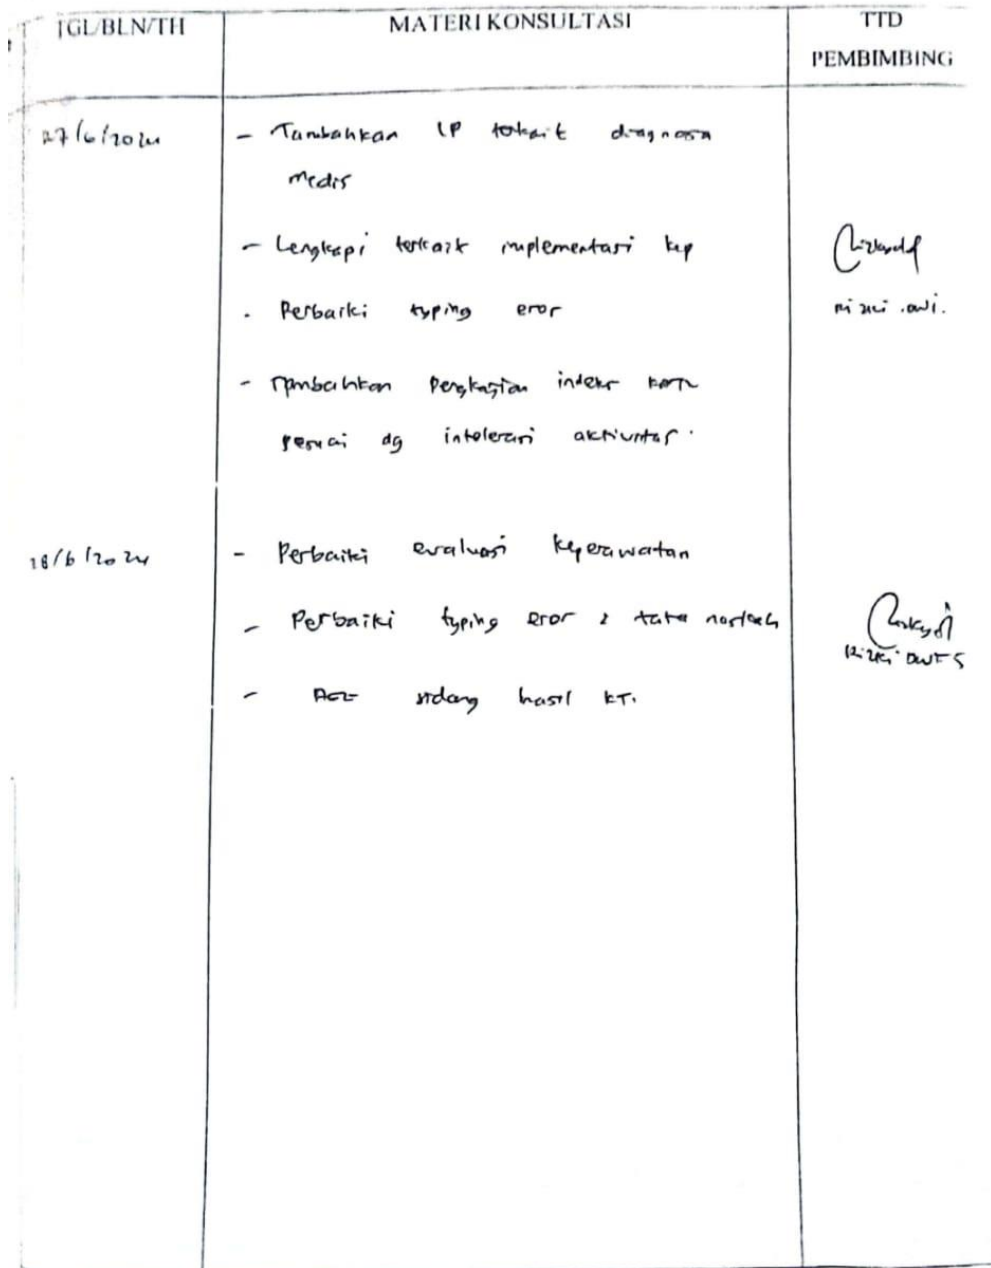 TGL/BLN/TH
MATERI KONSULTASI
TTD
PEMBIMBING
27/6/2024
- Tambahkan LP terkait diagnosa
medis
- Lengkapi terkait implementasi kep
- Perbaiki typing eror
Rizki .
- Tambahkan pengkajian indeks
sesuai dg intoleransi aktivitas.
28/6/2024
- Perbaiki evaluasi keperawatan
- Perbaiki typing eror & tata naskah
Rizki Dwi S
- ACC sidang hasil KTI